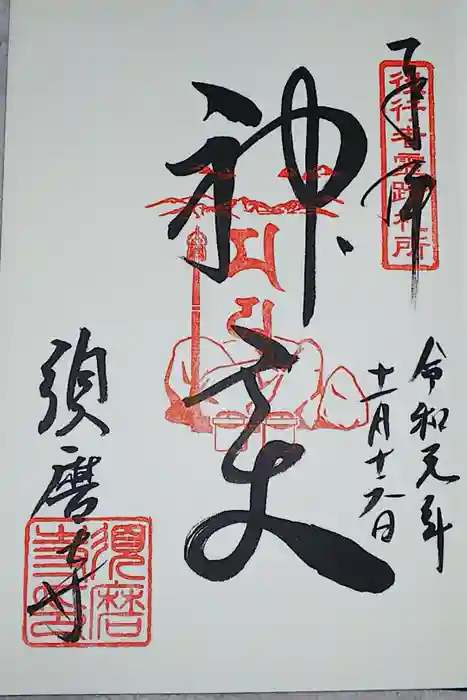 奉拝
役行者霊蹟札所
令和元年
十一月十六日
神変
須磨寺
須磨